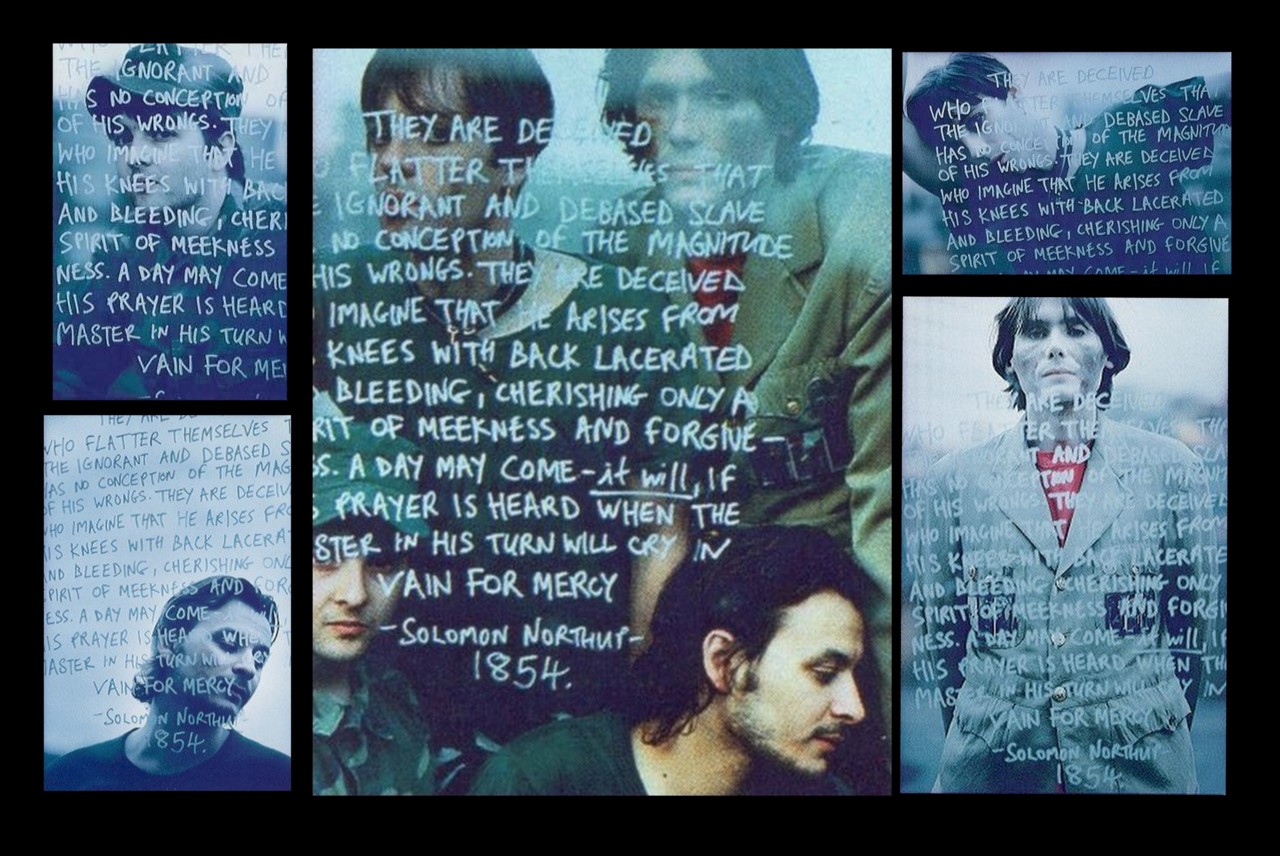 WHO FLATTER THE
THE IGNORANT AND
HAS NO CONCEPTION OF
OF HIS WRONGS. THEY
WHO IMAGINE THAT HE
HIS KNEES WITH BAC
AND BLEEDING, CHERI
SPIRIT OF MEEKNESS
NESS. A DAY MAY COME
HIS PRAYER IS HEARD
MASTER IN HIS TURN W
VAIN FOR ME
THEY ARE DE
WHO FLATTER THEMSELVES T
THE IGNORANT AND DEBASED S
HAS NO CONCEPTION OF THE MAG
OF HIS WRONGS. THEY ARE DECEIV
WHO IMAGINE THAT HE ARISES FRO
HIS KNEES WITH BACK LACERAT
AND BLEEDING, CHERISHING ONL
SPIRIT OF MEEKNESS AND FORG
ESS. A DAY MAY COME
IS PRAYER IS HEARD WHEN T
MASTER IN HIS TURN WILL CRY
VAIN FOR MERCY
-SOLOMON NORTHUP-
1854.
THEY ARE DECEIVED
FLATTER THEMSELVES THAT
E IGNORANT AND DEBASED SLAVE
NO CONCEPTION OF THE MAGNITUDE
HIS WRONGS. THEY ARE DECEIVED
IMAGINE THAT HE ARISES FROM
KNEES WITH BACK LACERATED
BLEEDING, CHERISHING ONLY A
RIT OF MEEKNESS AND FORGIVE-
SS. A DAY MAY COME-it will, IF
PRAYER IS HEARD WHEN THE
STER IN HIS TURN WILL CRY IN
VAIN FOR MERCY
-SOLOMON NORTHUP-
1854.
THEY ARE DECEIVED
WHO FLATTER THEMSELVES THA
THE IGNORANT AND DEBASED SLAVE
HAS NO CONCEPTION OF THE MAGNITUD
OF HIS WRONGS. THEY ARE DECEIVED
WHO IMAGINE THAT HE ARISES FROM
HIS KNEES WITH BACK LACERATED
AND BLEEDING, CHERISHING ONLY A
SPIRIT OF MEEKNESS AND FORGIVE
MAY COME-it will, IF
THEY ARE DECEIVED
WHO FLATTER THEMSELVES TH
AND DEBASED SLA
HAS NO CONCEPTION OF THE MAGNI
OF HIS WRONGS. THEY ARE DECEIVED
WHO IMAGINE THAT HE ARISES FROM
HIS KNEES WITH BACK LACERATE
AND BLEEDING, CHERISHING ONLY
SPIRIT OF MEEKNESS AND FORGI
NESS. A DAY MAY COME-it will, IF
HIS PRAYER IS HEARD WHEN TH
MASTER IN HIS TURN WILL CRY IN
VAIN FOR MERCY
-SOLOMON NORTHUP-
1854.